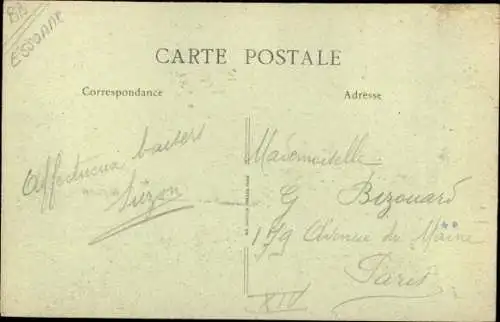 ESSONNE
CARTE POSTALE
Correspondance
Adresse
Affectueux baisers
Suzon
Mademoiselle
G Bizouard
179 Avenue du Maine
Paris
XIV